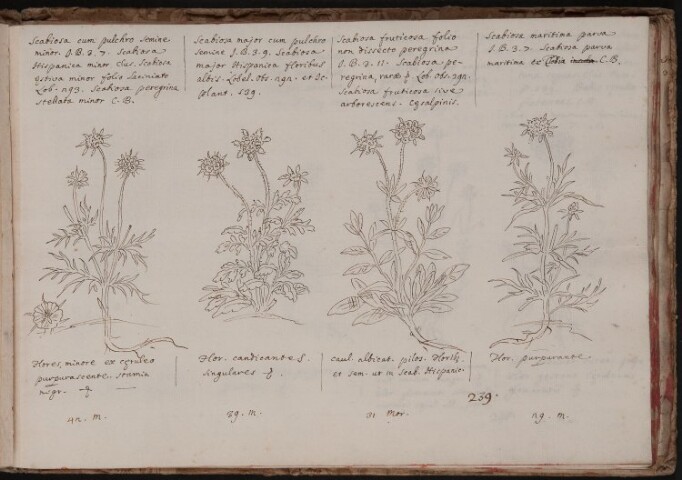 Scabiosa cum pulchro semine
minor. J.B. 3. 7. Scabiosa
Hispanica minor Clus. Scabiosa
estiva minor folio laciniato
Lob. n93. Scabiosa peregrina
stellata minor C.B.
Scabiosa major cum pulchro
semine J.B. 3. 9. Scabiosa
major Hispanica floribus
albis. Lobel. Obs. 291. et Ic.
plant. 539.
Scabiosa fruticosa folio
non dissecto peregrina
J.B. 3. 11. Scabiosa pe-
regrina, Lob obs 291.
Scabiosa fruticosa sive
arborescens. Cęsalpinis.
Scabiosa maritima parva
J.B. 3. 7. Scabiosa parva
maritima C.B.
Flores, minore ex cęruleo
purpurascente. stamia
nigr.
Flor. candicantes.
singulares
caul. albicat. pilos. Flor
et sem. ut in Scab. Hispanic.
Flor. purpurante.
239.
42. m.
39. m.
31 Mor.
29. m.